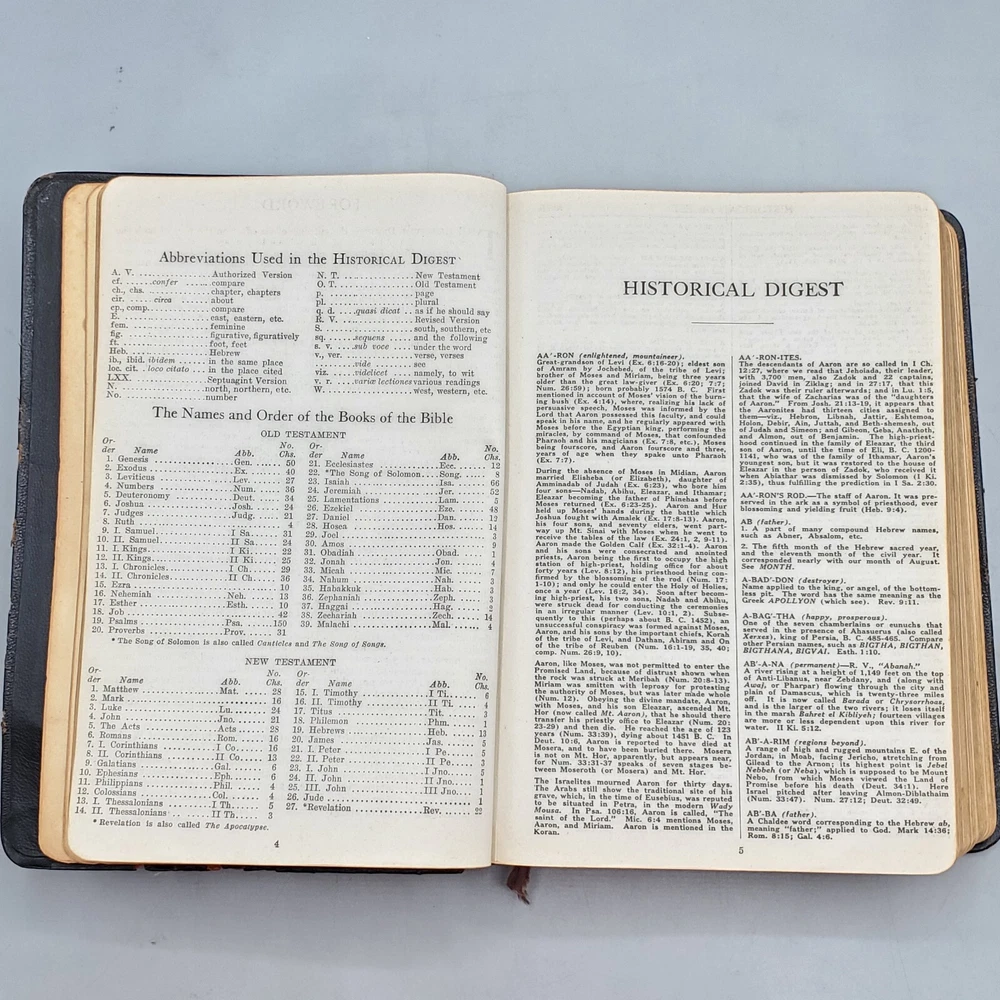 Abbreviations Used in the HISTORICAL DIGEST
A. V. .......... Authorized Version
cf. ......confer ...... compare
ch., chs. .......... chapter, chapters
cir. ...... circa ...... about
cp., comp. .......... compare
E. .......... east, eastern, etc.
fem. .......... feminine
fig. .......... figurative, figuratively
ft. .......... foot, feet
Heb. .......... Hebrew
ib., ibid. ibidem ...... in the same place
loc. cit. . loco citato .... in the place cited
LXX. .......... Septuagint Version
N. .......... north, northern, etc.
No. .......... number
N. T. .......... New Testament
O. T. .......... Old Testament
p. .......... page
pl. .......... plural
q. d. ....quasi dicat .. as if he should say
R. V. .......... Revised Version
S. .......... south, southern, etc
sq. ......sequens ...... and the following
s. v. .... sub voce .... under the word
v., ver. .......... verse, verses
......vide ...... see
viz. ......videlicet .... namely, to wit
v. r. ....variæ lectiones various readings
W. .......... west, western, etc.
The Names and Order of the Books of the Bible
OLD TESTAMENT
Or-der Name Abb. No. Chs.
1. Genesis .......... Gen. ..... 50
2. Exodus .......... Ex. ..... 40
3. Leviticus .......... Lev. ..... 27
4. Numbers .......... Num. ..... 36
5. Deuteronomy .......... Deut. ..... 34
6. Joshua .......... Josh. ..... 24
7. Judges .......... Judg. ..... 21
8. Ruth .......... 4
9. I. Samuel .......... I Sa. ..... 31
10. II. Samuel .......... II Sa. ..... 24
11. I. Kings .......... I Ki. ..... 22
12. II. Kings .......... II Ki. ..... 25
13. I. Chronicles .......... I Ch. ..... 29
14. II. Chronicles .......... II Ch. ..... 36
15. Ezra .......... 10
16. Nehemiah .......... Neh. ..... 13
17. Esther .......... Esth. ..... 10
18. Job .......... 42
19. Psalms .......... Psa. ..... 150
20. Proverbs .......... Prov. ..... 31
Or-der Name Abb. No. Chs.
21. Ecclesiastes .......... Ecc. ..... 12
22. *The Song of Solomon .. Song. ..... 8
23. Isaiah .......... Isa. ..... 66
24. Jeremiah .......... Jer. ..... 52
25. Lamentations .......... Lam. ..... 5
26. Ezekiel .......... Eze. ..... 48
27. Daniel .......... Dan. ..... 12
28. Hosea .......... Hos. ..... 14
29. Joel .......... 3
30. Amos .......... 9
31. Obadiah .......... Obad. ..... 1
32. Jonah .......... Jon. ..... 4
33. Micah .......... Mic. ..... 7
34. Nahum .......... Nah. ..... 3
35. Habakkuk .......... Hab. ..... 3
36. Zephaniah .......... Zeph. ..... 3
37. Haggai .......... Hag. ..... 2
38. Zechariah .......... Zech. ..... 14
39. Malachi .......... Mal. ..... 4
* The Song of Solomon is also called Canticles and The Song of Songs.
NEW TESTAMENT
Or-der Name Abb. No. Chs.
1. Matthew .......... Mat. ..... 28
2. Mark .......... 16
3. Luke .......... Lu. ..... 24
4. John .......... Jno. ..... 21
5. The Acts .......... Acts ..... 28
6. Romans .......... Rom. ..... 16
7. I. Corinthians .......... I Co. ..... 16
8. II. Corinthians .......... II Co. ..... 13
9. Galatians .......... Gal. ..... 6
10. Ephesians .......... Eph. ..... 6
11. Philippians .......... Phil. ..... 4
12. Colossians .......... Col. ..... 4
13. I. Thessalonians .......... I Th. ..... 5
14. II. Thessalonians .......... II Th. ..... 3
Or-der Name Abb. No. Chs.
15. I. Timothy .......... I Ti. ..... 6
16. II. Timothy .......... II Ti. ..... 4
17. Titus .......... Tit. ..... 3
18. Philemon .......... Phm. ..... 1
19. Hebrews .......... Heb. ..... 13
20. James .......... Jas. ..... 5
21. I. Peter .......... I Pe. ..... 5
22. II. Peter .......... II Pe. ..... 3
23. I. John .......... I Jno. ..... 5
24. II. John .......... II Jno. ..... 1
25. III. John .......... III Jno. ..... 1
26. Jude .......... 1
27. *Revelation .......... Rev. ..... 22
* Revelation is also called The Apocalypse.
4
HISTORICAL DIGEST
AA'-RON (enlightened, mountaineer).
Great-grandson of Levi (Ex. 6:16-20); eldest son
of Amram by Jochebed, of the tribe of Levi;
brother of Moses and Miriam, being three years
older than the great law-giver (Ex. 6:20; 7:7;
Num. 26:59); born probably 1574 B. C. First
mentioned in account of Moses' vision of the burn-
ing bush (Ex. 4:14), where, realizing his lack of
persuasive speech, Moses was informed by the
Lord that Aaron possessed this faculty, and could
speak in his name, and he regularly appeared with
Moses before the Egyptian king, performing the
miracles, by command of Moses, that confounded
Pharaoh and his magicians (Ex. 7:8, etc.). Moses
being fourscore, and Aaron fourscore and three,
years of age when they spake unto Pharaoh
(Ex. 7:7).
During the absence of Moses in Midian, Aaron
married Elisheba (or Elizabeth), daughter of
Amminadab of Judah (Ex. 6:23), who bore him
four sons—Nadab, Abihu, Eleazar, and Ithamar;
Eleazar becoming the father of Phinehas before
Moses returned (Ex. 6:23-25). Aaron and Hur
held up Moses' hands during the battle which
Joshua fought with Amalek (Ex. 17:8-13). Aaron,
his four sons, and seventy elders, went part-
way up Mt. Sinai with Moses when he went to
receive the tables of the law (Ex. 24:1, 2, 9-11).
Aaron made Golden Calf (Ex. 32:1-4). Aaron
and his sons were consecrated and anointed
priests, Aaron being the first to occupy the high
station of high-priest, holding office for about
forty years (Lev. 8:12), his priesthood being con-
firmed by the blossoming of the rod (Num. 17:
1-10); and only he could enter the Holy of Holies,
once a year (Lev. 16:2, 34). Soon after becom-
ing high-priest, his two sons, Nadab and Abihu,
were struck dead for conducting the ceremonies
in an irregular manner (Lev. 10:1, 2). Subse-
quently to this (perhaps about B. C. 1452), an
unsuccessful conspiracy was formed against Moses,
Aaron, and his sons by the important chiefs, Korah
of the tribe of Levi, and Dathan, Abiram and On
of the tribe of Reuben (Num. 16:1-19, 35, 40;
comp. Num. 26:9, 10).
Aaron, like Moses, was not permitted to enter the
Promised Land, because of distrust shown when
the rock was struck at Meribah (Num. 20:8-13).
Miriam was smitten with leprosy for protesting
the authority of Moses, but was later made whole
(Num. 12). Obeying the divine mandate, Aaron,
with Moses, and his son Eleazar, ascended Mt.
Hor (now called Mt. Aaron), that he should there
transfer his priestly office to Eleazar (Num. 20:
23-29) and then die. He reached the age of 123
years (Num. 33:39), dying about 1451 B. C. In
Deut. 10:6, Aaron is reported to have died at
Mosera, and to have been buried there. Mosera
is not on Mt. Hor, apparently, but appears near,
for Num. 33:31-37 speaks of seven stages be-
tween Moseroth (or Mosera) and Mt. Hor.
The Israelites mourned Aaron for thirty days.
The Arabs still show the traditional site of his
grave, which, in the time of Eusebius, was reputed
to be situated in Petra, in the modern Wady
Mousa. In Psa. 106:16, Aaron is called, "The
saint of the Lord." Mic. 6:4 mentions Moses,
Aaron, and Miriam. Aaron is mentioned in the
Koran.
AA'-RON-ITES.
The descendants of Aaron are so called in I Ch.
12:27, where we read that Jehoiada, their leader,
with 3,700 men, also Zadok and 22 captains,
joined David in Ziklag; and in 27:17, that this
Zadok was their ruler afterwards; and in Lu. 1:5,
that the wife of Zacharias was of the "daughters
of Aaron." From Josh. 21:13-19, it appears that
the Aaronites had thirteen cities assigned to
them—viz., Hebron, Libnah, Jattir, Eshtemoa,
Holon, Debir, Ain, Juttah, and Beth-shemesh, out
of Judah and Simeon; and Gibeon, Geba, Anathoth,
and Almon, out of Benjamin. The high-priest-
hood continued in the family of Eleazar, the third
son of Aaron, until the time of Eli, B. C. 1200-
1141, who was of the family of Ithamar, Aaron's
youngest son, but it was restored to the house of
Eleazar in the person of Zadok, who received it
when Abiathar was dismissed by Solomon (I Ki.
2:35), thus fulfilling the prediction in I Sa. 2:30.
AA'-RON'S ROD.—The staff of Aaron. It was pre-
served in the ark as a symbol of priesthood, ever
blossoming and yielding fruit (Heb. 9:4).
AB (father).
1. A part of many compound Hebrew names,
such as Abner, Absalom, etc.
2. The fifth month of the Hebrew sacred year,
and the eleventh month of the civil year. It
corresponded nearly with our month of August.
See MONTH.
A-BAD'-DON (destroyer).
Name applied to the king, or angel, of the bottom-
less pit. The word has the same meaning as the
Greek APOLLYON (which see). Rev. 9:11.
A-BAG-THA (happy, prosperous).
One of the seven chamberlains or eunuchs that
served in the presence of Ahasuerus (also called
Xerxes), king of Persia, B. C. 485-465. Compare
other Persian names, such as BIGTHA, BIGTHAN,
BIGTHANA, BIGVAI. Esth 1:10.
AB'-A-NA (permanent)—R. V., "Abanah."
A river rising at a height of 1,149 feet on the top
of Anti-Libanus, near Zebdany, and (along with
Awaj, or Pharpar) flowing through the city and
plain of Damascus, which is twenty-three miles
off. It is now called Barada or Chrysorrhoas,
and is the larger of the two rivers; it loses itself
in the marsh Bahret el Kibliyeh; fourteen villages
are more or less dependent upon this river for
water. II Ki. 5:12.
AB'-A-RIM (regions beyond).
A range of high and rugged mountains E. of the
Jordan, in Moab, facing Jericho, stretching from
Gilead to the Arnon; its highest point is Jebel
Nebbeh (or Nebo), which is supposed to be Mount
Nebo, from which Moses viewed the Land of
Promise before his death (Deut. 34:1). Here
Israel pitched after leaving Almon-Diblathaim
(Num. 33:47). Num. 27:12; Deut. 32:49.
AB'-BA (father).
A Chaldee word corresponding to the Hebrew ab,
meaning "father;" applied to God. Mark 14:36;
Rom. 8:15; Gal. 4:6.
5